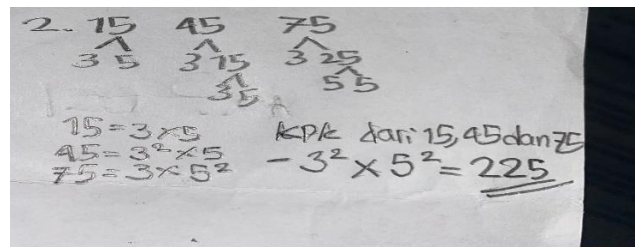 2. 15 45 75
3 5 3 15 3 25
3 5 5 5
15 = 3 × 5
45 = 3² × 5
75 = 3 × 5²
KPK dari 15, 45 dan 75
- 3² × 5² = 225